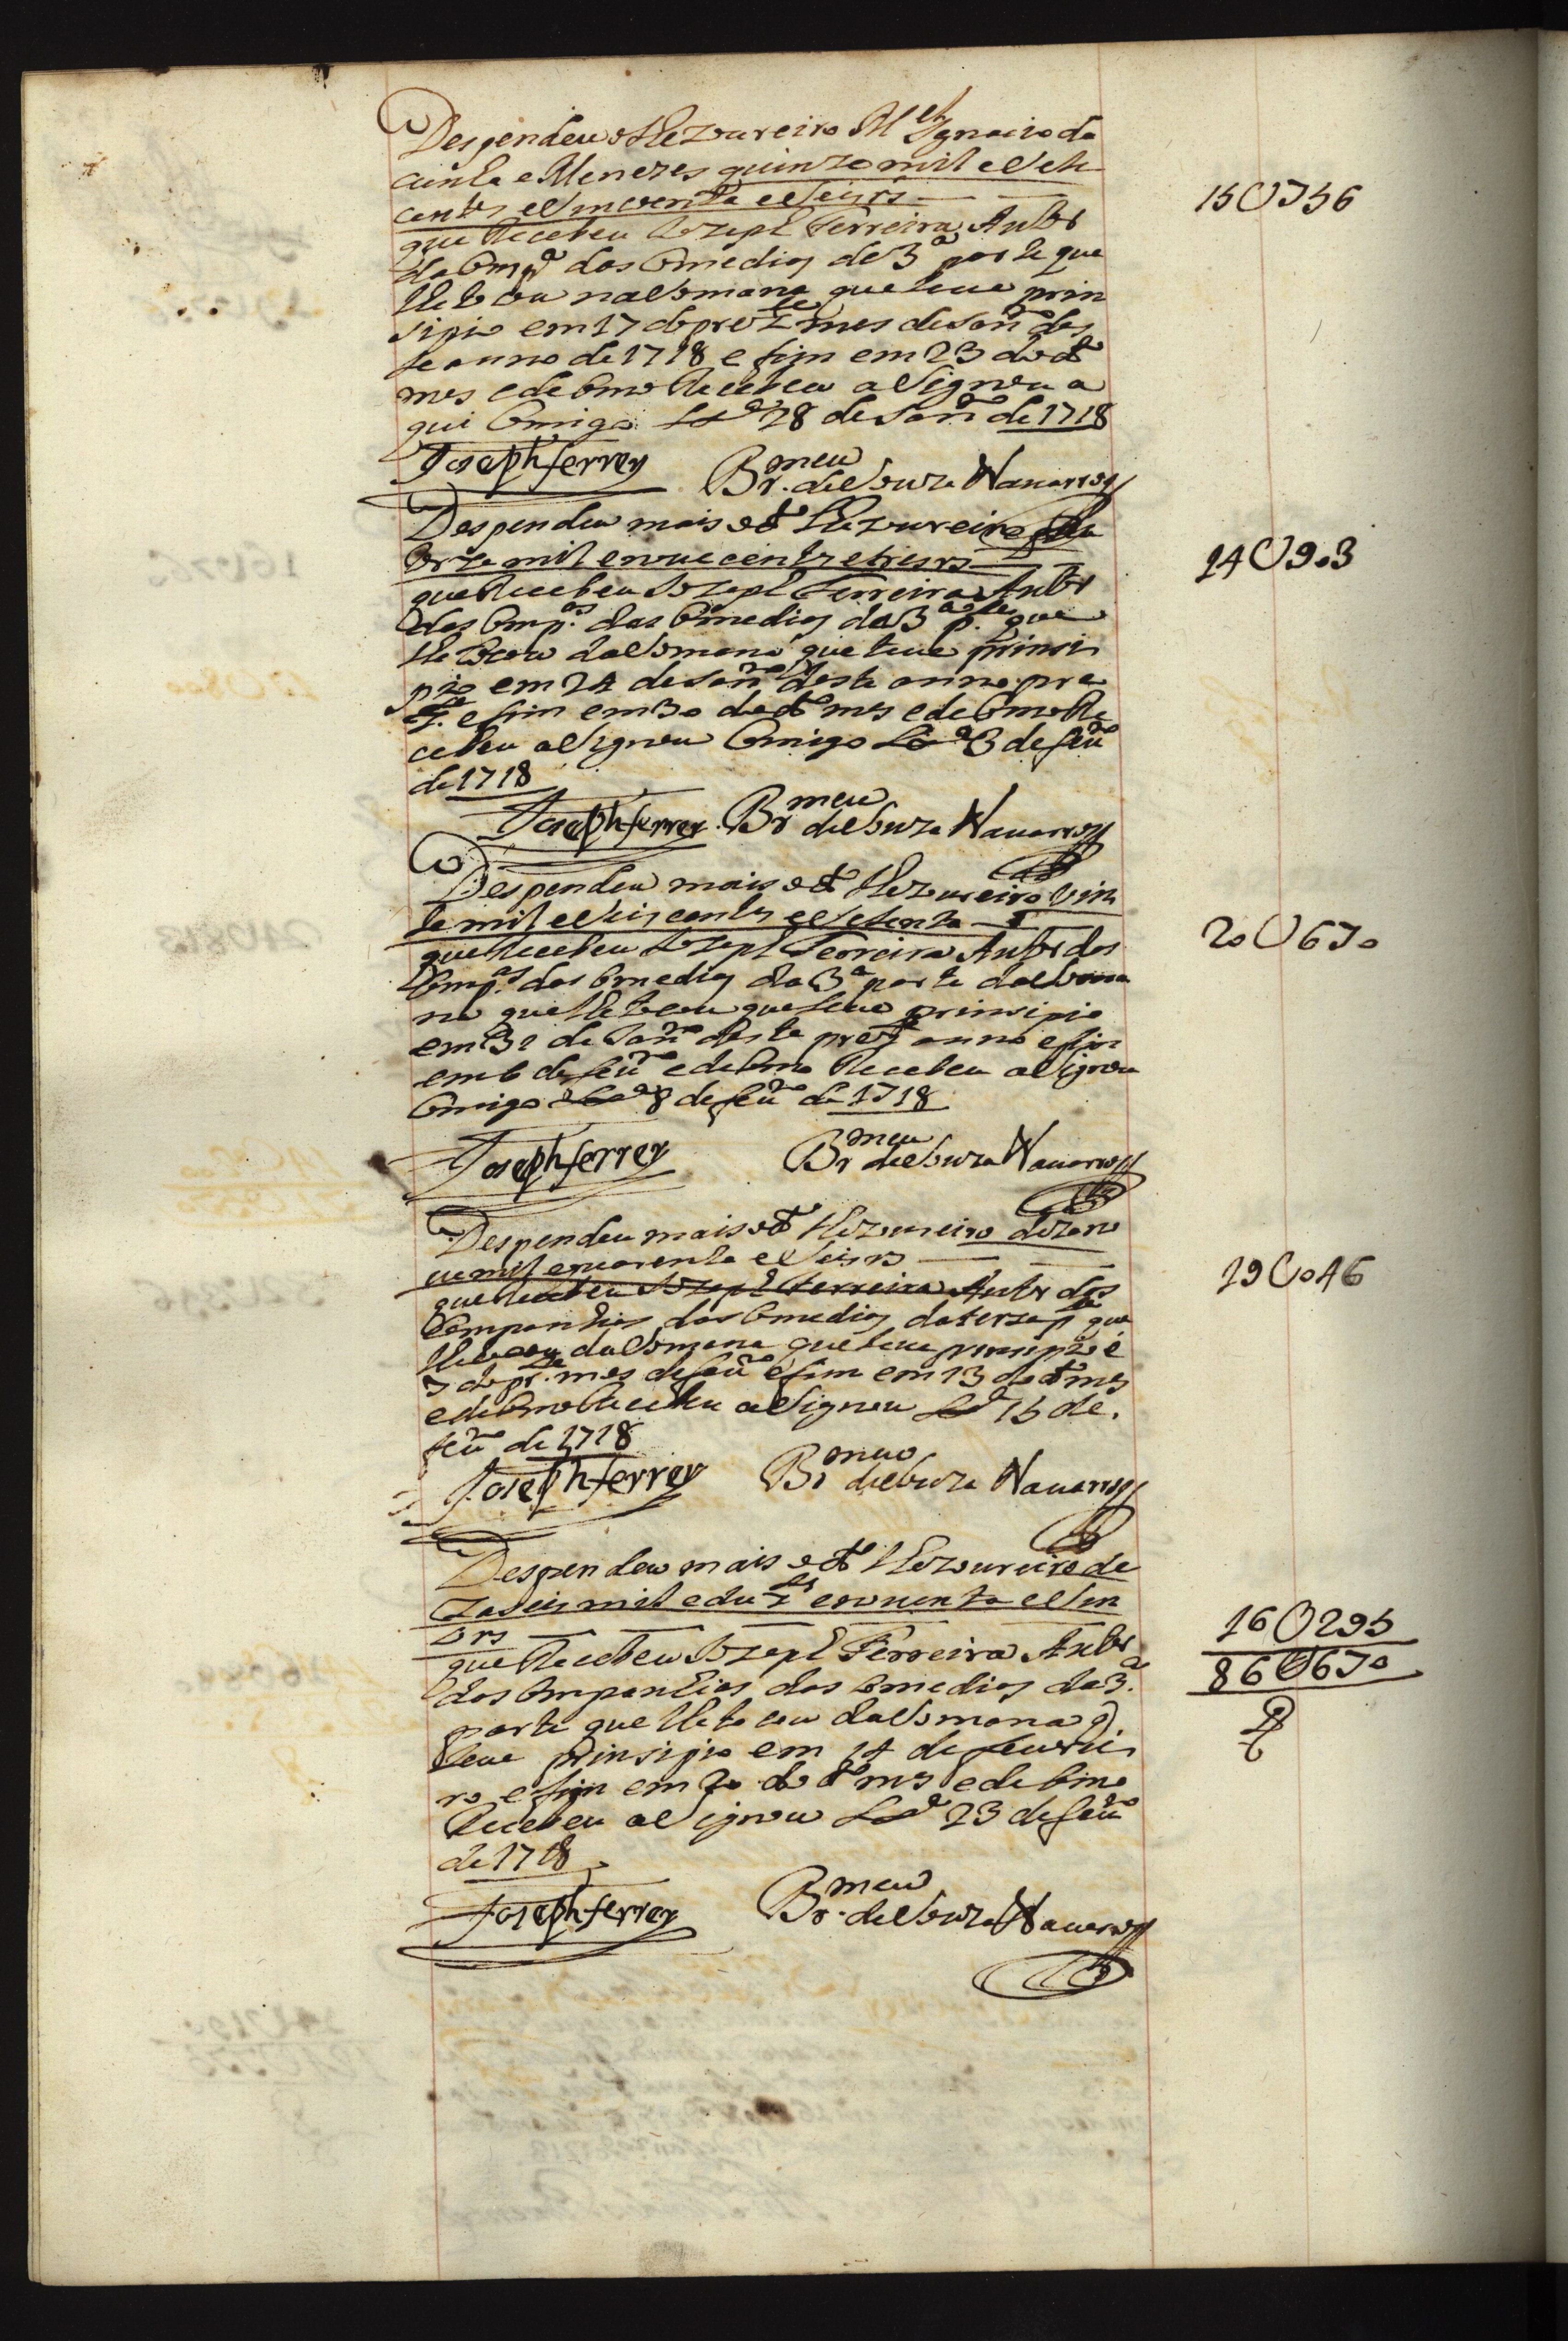 Despendeu o Thezoureiro M.el Ignacio da
Cunha e Menezes quinze mil e sete
centos e sincoenta e seis rs
15U756
que Receceu Jozeph Ferreira Autor
da Comp.ª das Comedias de 3ª parte que
lhe tocou na Somana que teve prin
sipio em 17 do prez.te mes de Jan.ro des
te anno de 1718 e fim em 23 do d.to
mes e de Como Recebeu aSignou a
qui Comigo Lx.ª 28 de Jan.ro de 1718
Joseph ferrer Br.meu de Souza Navarro
Despendeu mais o d.to Thezoureiro qua
torze mil e novecentos e tres rs
14U903
que Recebeu Jozeph Ferreira Autor
das Comp.as das Comedias da 3ª p.te que
lhe tocou da Somana que teve prinsi
pio em 24 de Jan.ro deste anno pre
z.te e fim em 30 do d.to mes e de Como Re
cebeu aSignou Comigo Lx.ª 3 de feu.ro
de 1718
Joseph ferrer Br.meu de Souza Navarro
Despendeu mais o d.to Thezoureiro vin
te mil e seis centos e setenta rs
20U670
que Recebeu Jozeph Ferreira Autor das
Comp.as das Comedias da 3ª parte da Soma
na que lhe tocou que teve prinsipio
em 31 de Jan.ro deste prez.te anno e fim
em 6 de feu.ro e de Como Recebeu aSignou
Comigo Lx.ª 8 de feu.ro de 1718
Joseph ferrer Br.meu de Souza Navarro
Despendeu mais o d.to Thezoureiro dezano
ve mil e quarenta e seis rs
19U046
que Recebeu Jozeph Ferreira Autor das
Companhias das Comedias da tersa p.te que
lhe tocou da Somana que teve prinsipio ẽ
7 do pr.te mes de feu.ro e fim em 13 do d.to mes
e de Como Recebeu aSignou Lx.ª 15 de
feu.ro de 1718
Joseph ferrer Br.meu de Souza Navarro
Despendeu mais o d.to Thezoureiro de
zaseis mil e duz.tos e noventa e sin
co rs
16U295
86U670
que Recebeu Jozeph Ferreira Autor
das Companhias das Comedias da 3.ª
parte que lhe tocou da Somana q
teve prinsipio em 14 de feverei
ro e fim em 20 do d.to mes e de Como
Recebeu aSignou Lx.ª 23 de feu.ro
de 1718
Joseph ferrer Br.meu de Souza Navarro